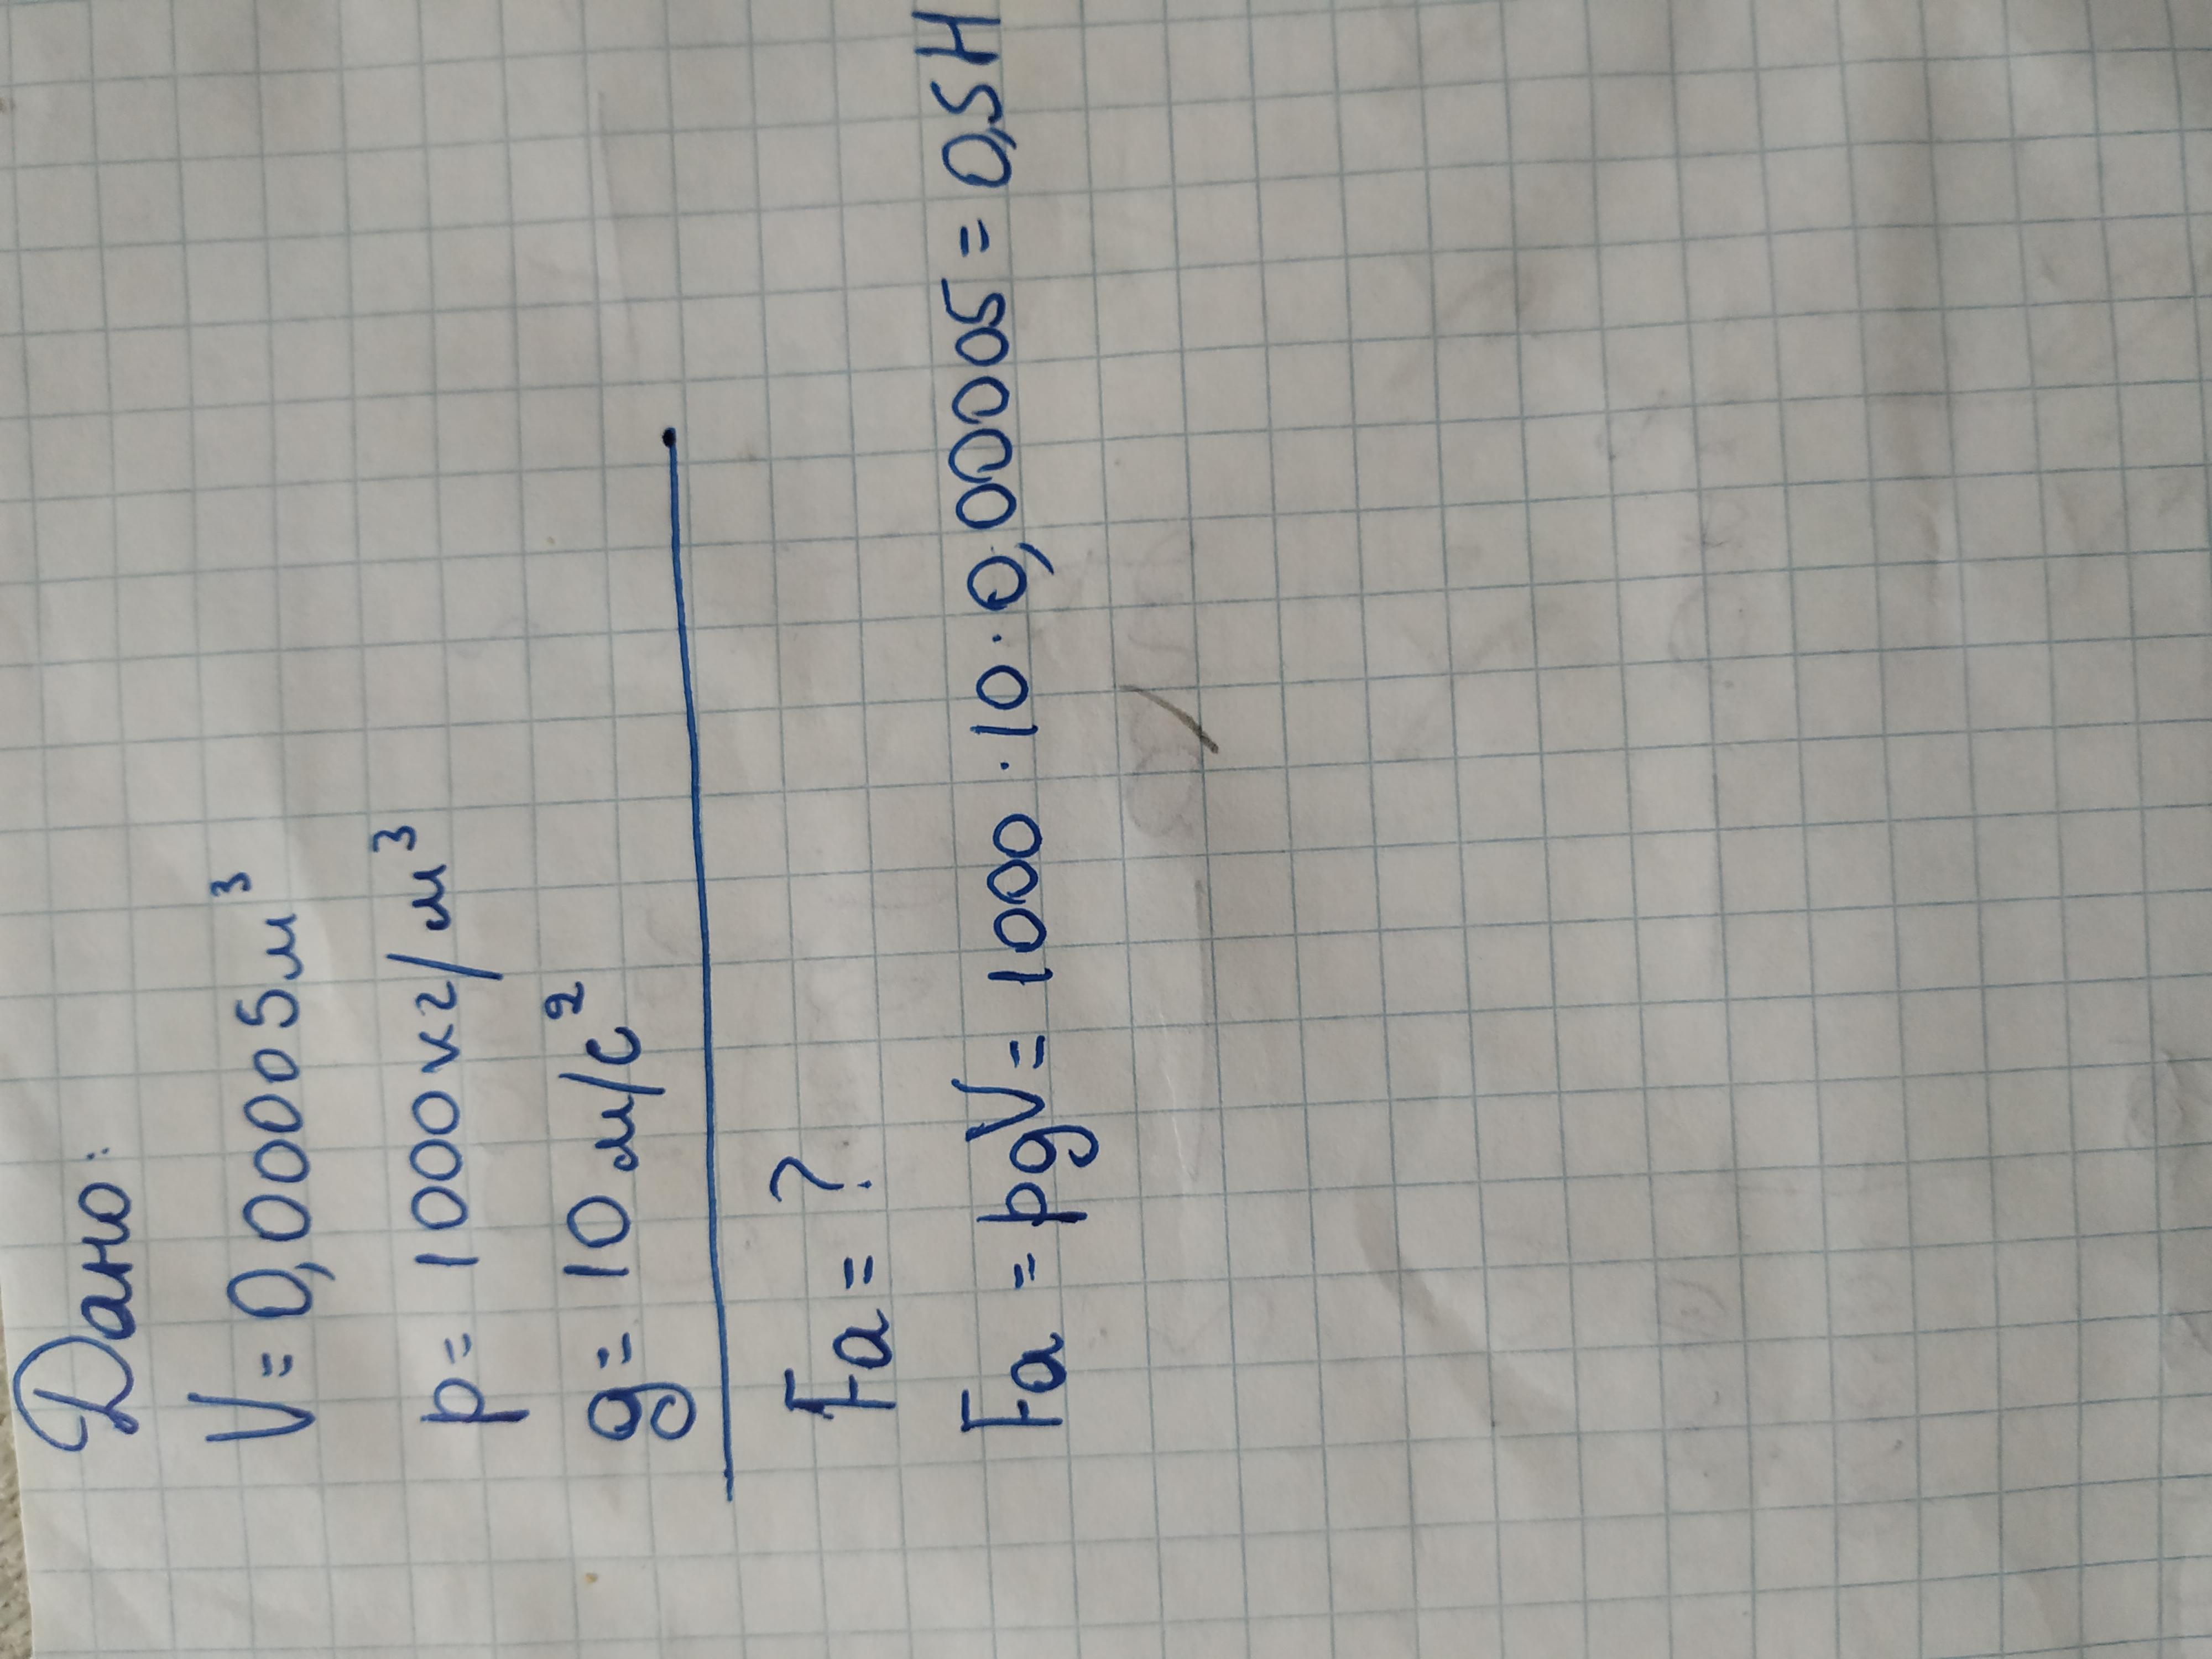 Дано:
V = 0,00005м³
p = 1000кг/м³
g = 10 м/с²
Fa = ?
Fa = pgV = 1000 · 10 · 0,00005 = 0,5Н